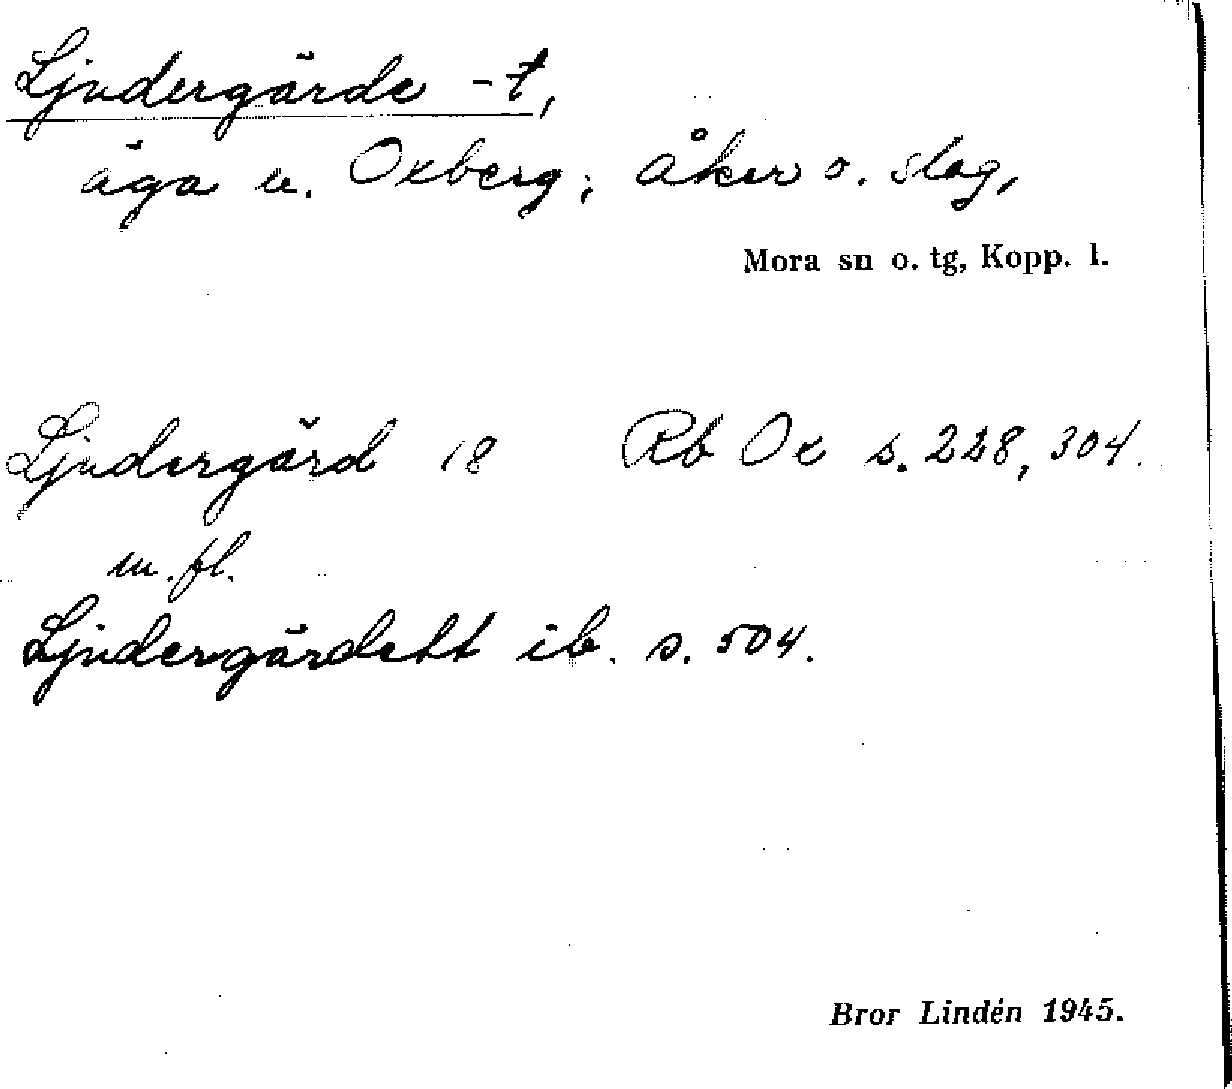 Ljudergärde -t,
äga u. Oxberg; åker o. slog,
Mora sn o. tg, Kopp. l.
Ljudergärd 18 Rb Ox s. 228, 304.
m. fl.
Ljudergärdett ib. s. 504.
Bror Lindén 1945.